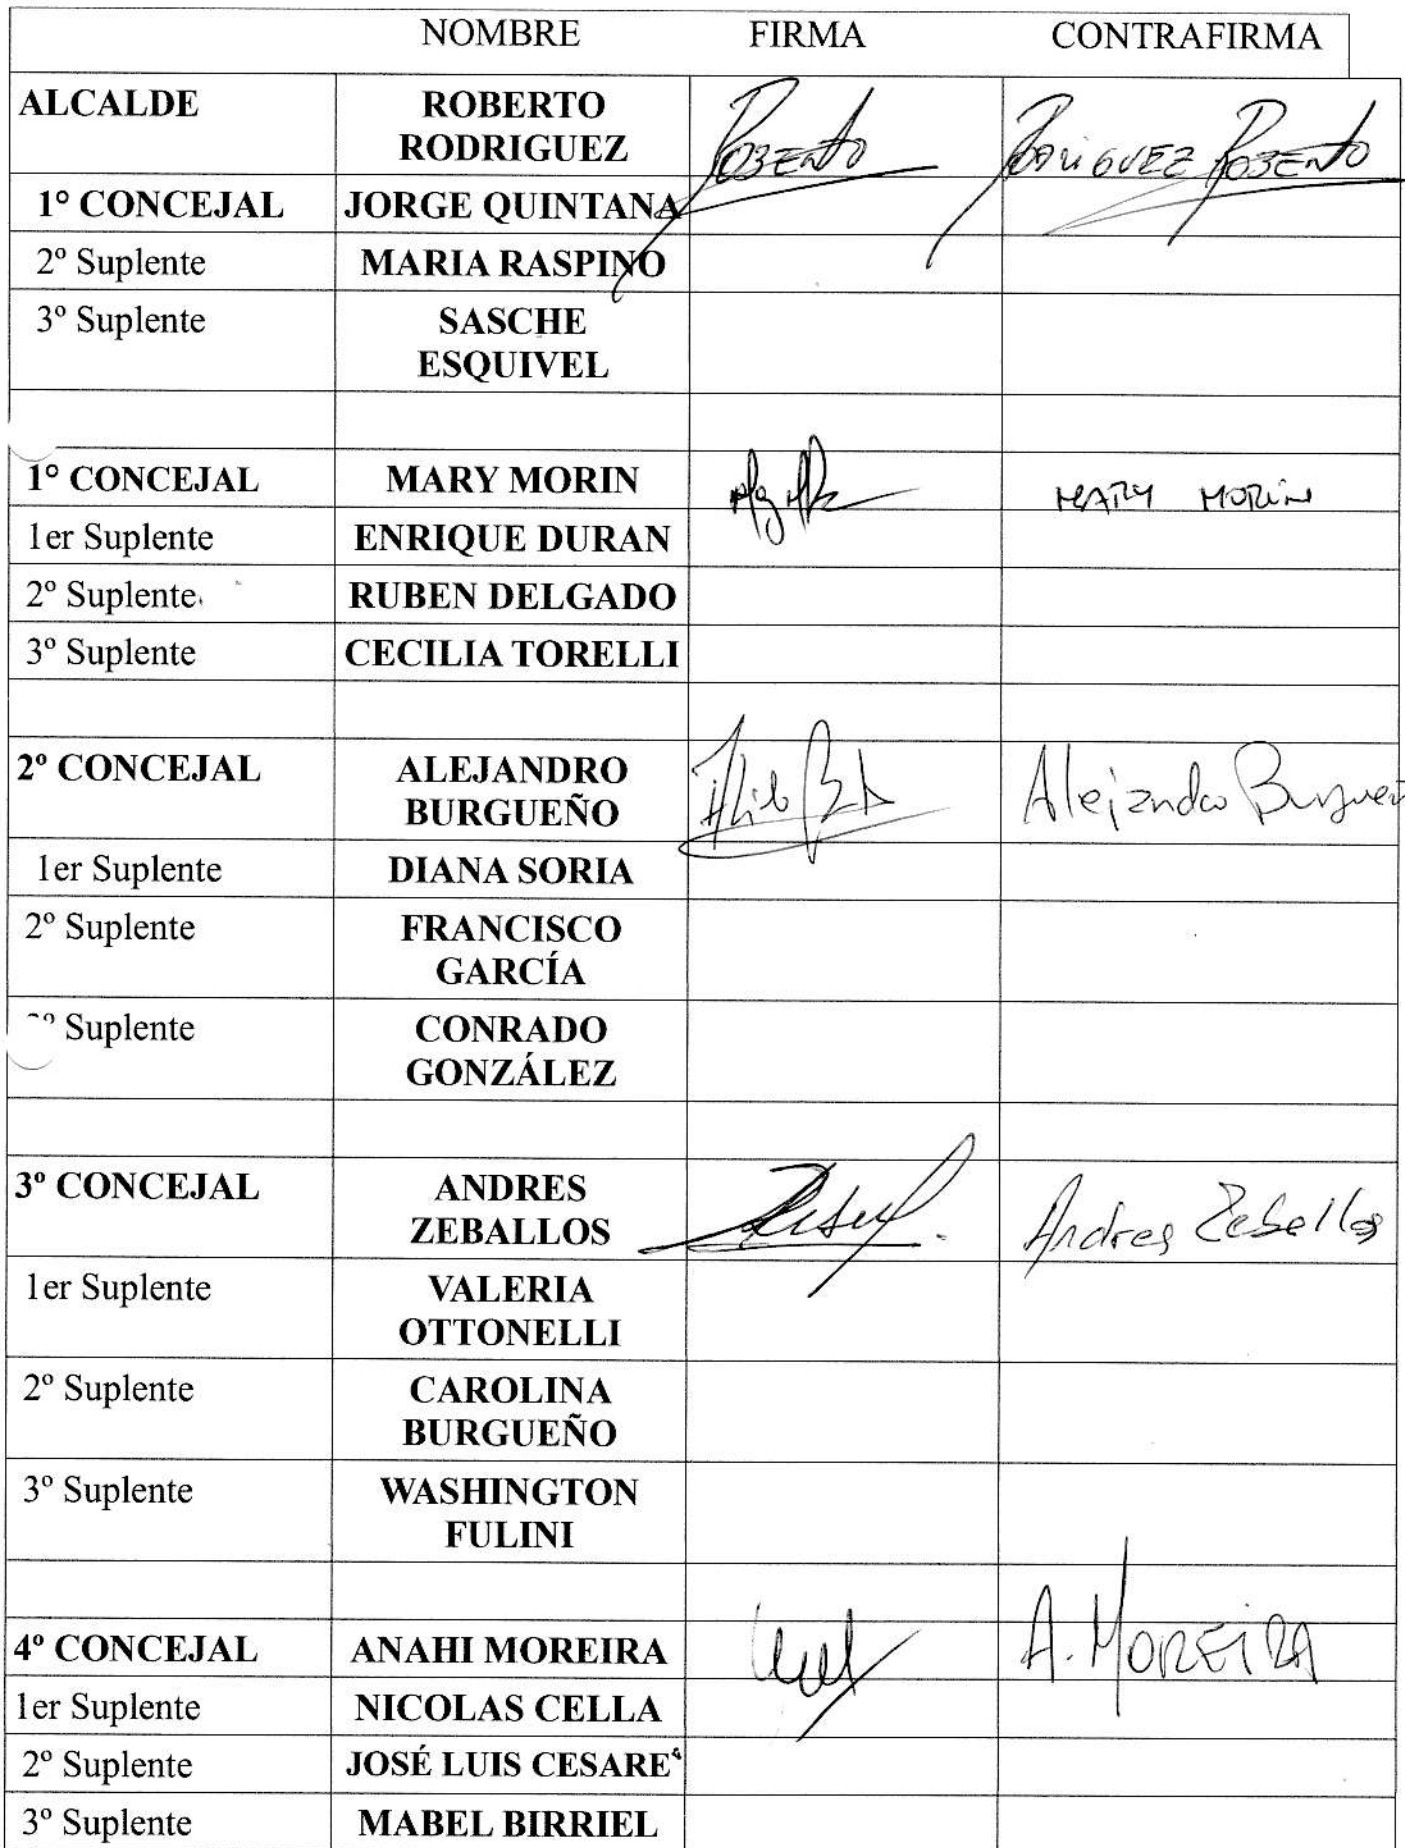 NOMBRE FIRMA CONTRAFIRMA
ALCALDE ROBERTO Roberto Rodriguez Roberto
RODRIGUEZ
1º CONCEJAL JORGE QUINTANA
2º Suplente MARIA RASPINO
3º Suplente SASCHE
ESQUIVEL
1º CONCEJAL MARY MORIN MARY MORIN
1er Suplente ENRIQUE DURAN
2º Suplente RUBEN DELGADO
3º Suplente CECILIA TORELLI
2º CONCEJAL ALEJANDRO Alejandro
BURGUEÑO
1er Suplente DIANA SORIA
2º Suplente FRANCISCO
GARCÍA
Suplente CONRADO
GONZÁLEZ
3º CONCEJAL ANDRES Andres Zeballos
ZEBALLOS
1er Suplente VALERIA
OTTONELLI
2º Suplente CAROLINA
BURGUEÑO
3º Suplente WASHINGTON
FULINI
4º CONCEJAL ANAHI MOREIRA A. MOREIRA
1er Suplente NICOLAS CELLA
2º Suplente JOSÉ LUIS CESARE
3º Suplente MABEL BIRRIEL